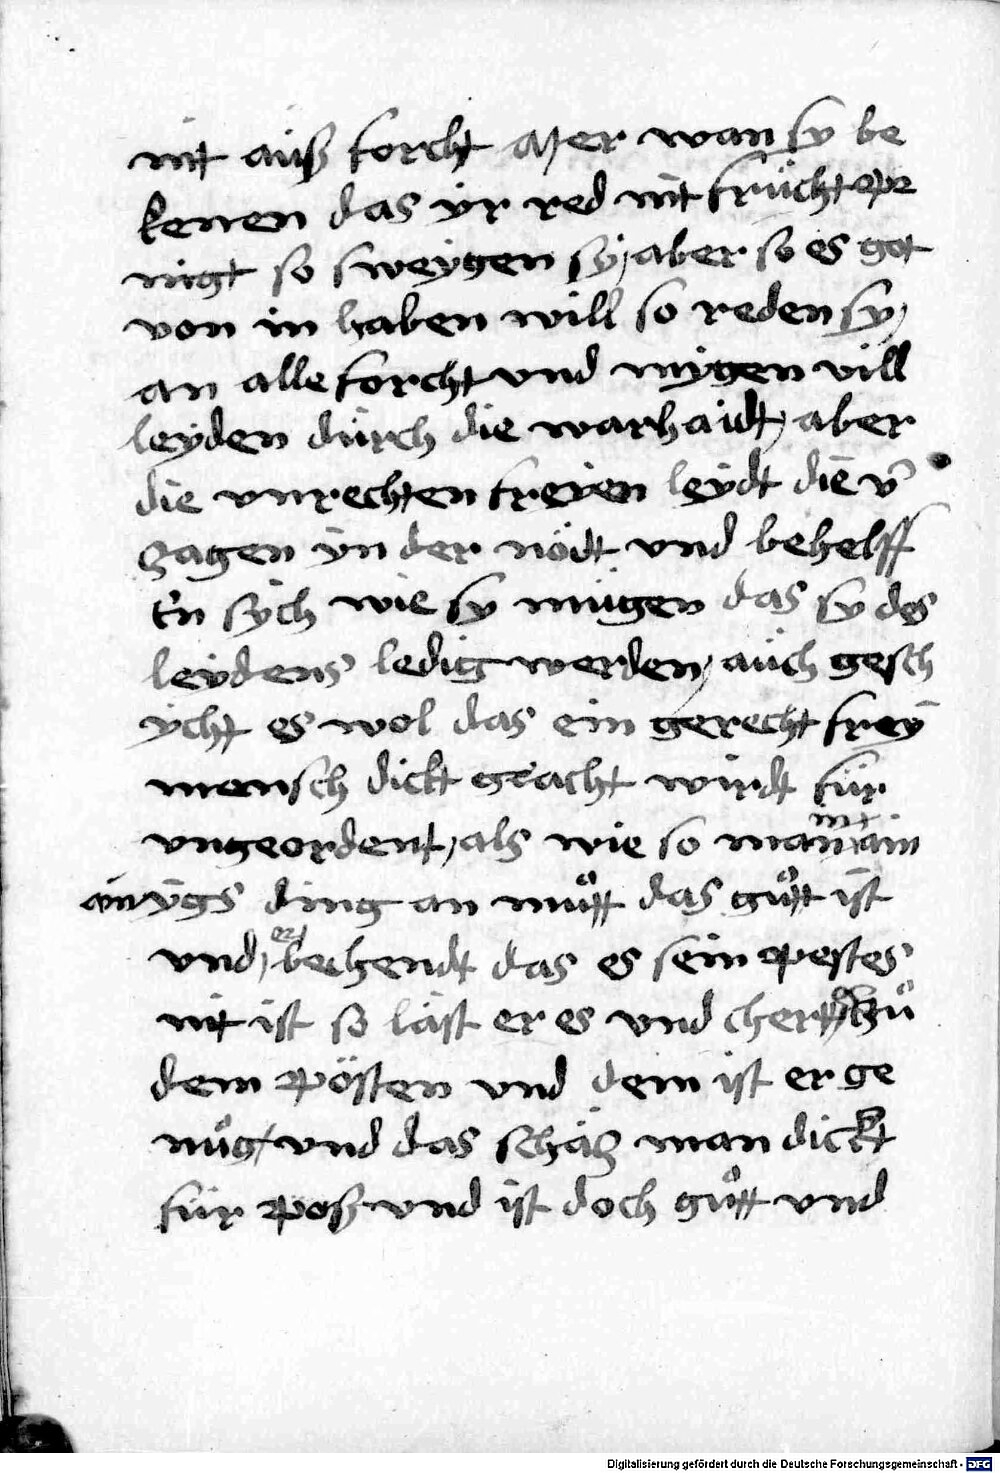 nit auß forcht Mer wan sy be
kenen das yr red nit frücht pr
nigt so sweygen sy, aber so es got
von in haben will so reden sy,
an alle forcht vnd mügen vill
leyden dürch die warhaidt, aber
die vnrechten freyen leydt die v̄
zagen yn der nödt vnd behelff
en sych wie sy mügen das sy des
leydens ledig werden, aüch gesch
ycht es wol das ein gerecht frey
mensch dickt geacht wirdt für
vngeordent, als wie so man nit ain
aynygs ding an müͦtt das güͦtt ist
vnd, er bechendt das es sein pestes
nit ist so läst er es vnd chert sich züͦ
dem pösten vnd dem ist er ge
nüͦg, vnd das schäz man dickt
für poß vnd ist doch güͦtt vnd
Digitalisierung gefördert durch die Deutsche Forschungsgemeinschaft - DFG